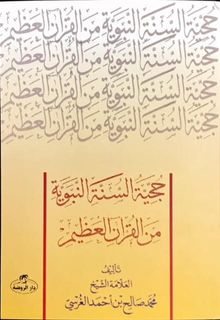 حجية السنة النبوية من القرآن العظيم
حجية السنة النبوية من القرآن العظيم
حجية السنة النبوية من القرآن العظيم
حجية السنة النبوية من القرآن العظيم
حجية السنة النبوية
من القرآن العظيم
تأليف
العلامة الشيخ
محمد صالح بن أحمد الغرسي
دار الروضة